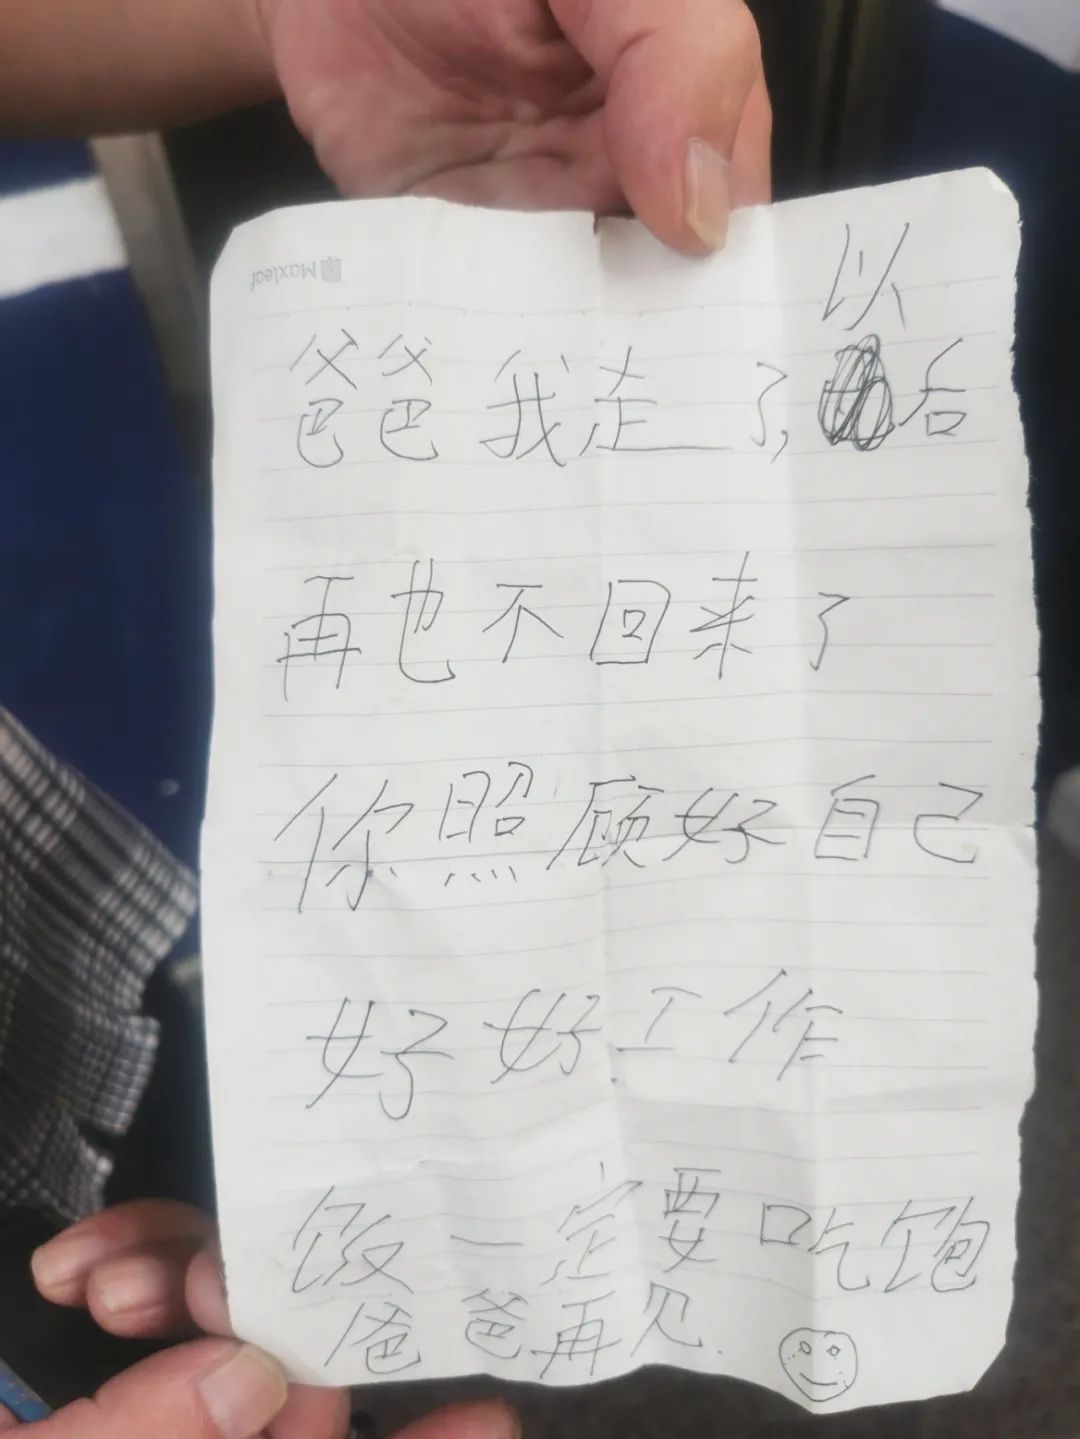 Maxleaf
爸爸我走了,以后
再也不回来了
你照顾好自己
好好工作
饭一定要吃饱
爸爸再见.